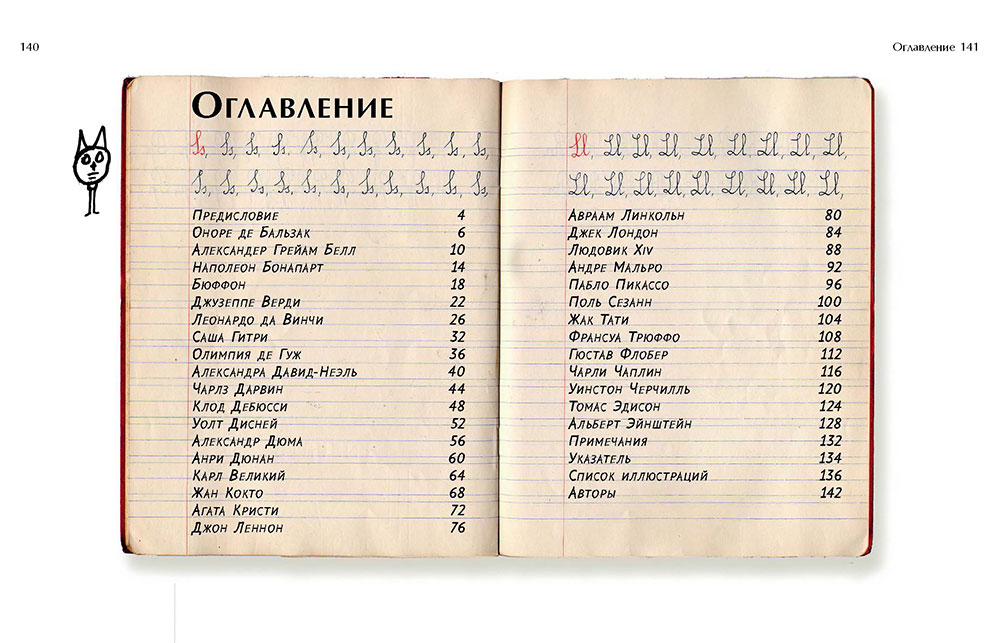 140
Оглавление 141
Оглавление
Ss, Ss, Ss, Ss. Ss, Ss, Ss, Ss, Ss, Ss, Ss,
Ss, Ss, Ss, Ss, Ss, Ss, Ss, Ss, Ss, Ss, Ss,
Предисловие 4
Оноре де Бальзак 6
Александер Грейам Белл 10
Наполеон Бонапарт 14
Бюффон 18
Джузеппе Верди 22
Леонардо да Винчи 26
Саша Гитри 32
Олимпия де Гуж 36
Александра Давид-Неэль 40
Чарлз Дарвин 44
Клод Дебюсси 48
Уолт Дисней 52
Александр Дюма 56
Анри Дюнан 60
Карл Великий 64
Жан Кокто 68
Агата Кристи 72
Джон Леннон 76
Ll, Ll, Ll, Ll, Ll, Ll, Ll, Ll, Ll,
Ll, Ll, Ll, Ll, Ll, Ll, Ll, Ll, Ll,
Авраам Линкольн 80
Джек Лондон 84
Людовик XIV 88
Андре Мальро 92
Пабло Пикассо 96
Поль Сезанн 100
Жак Тати 104
Франсуа Трюффо 108
Гюстав Флобер 112
Чарли Чаплин 116
Уинстон Черчилль 120
Томас Эдисон 124
Альберт Эйнштейн 128
Примечания 132
Указатель 134
Список иллюстраций 136
Авторы 142